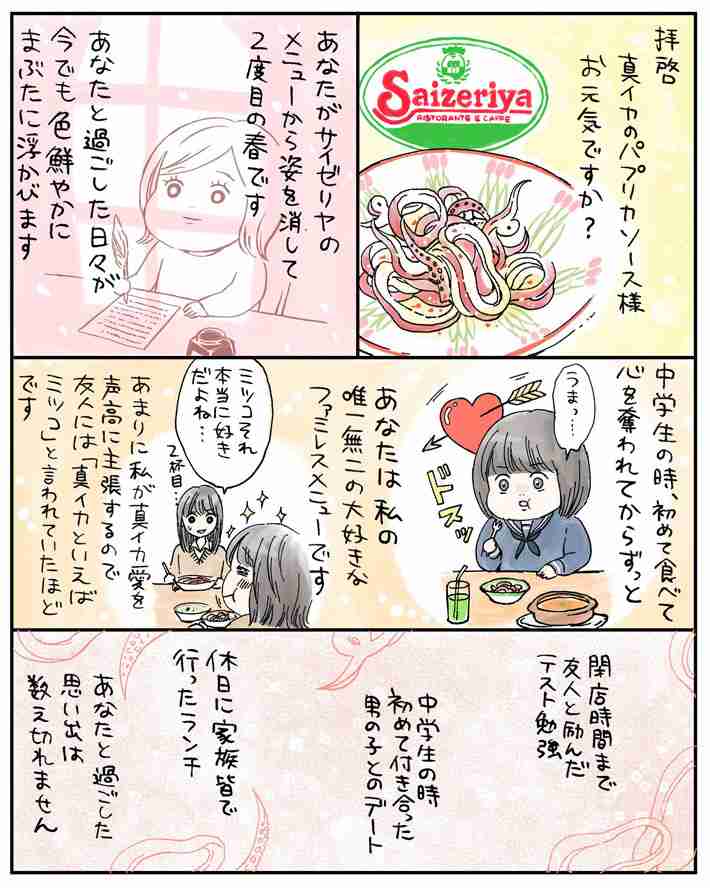 拝啓
真イカのパプリカソース様
お元気ですか?
Saizeriya
RISTORANTE E CAFFE
あなたがサイゼリヤの
メニューから姿を消して
2度目の春です
あなたと過ごした日々が
今でも色鮮やかに
まぶたに浮かびます
中学生の時、初めて食べて
心を奪われてからずっと
うまっ…
ドスッ
あなたは私の
唯一無二の大好きな
ファミレスメニューです
ミツコそれ
本当に好き
だよね…
2杯目…
あまりに私が真イカ愛を
声高に主張するので
友人には「真イカといえば
ミツコ」と言われていたほど
です
閉店時間まで
友人と励んだ
テスト勉強
中学生の時
初めて付き合った
男の子とのデート
休日に家族皆で
行ったランチ
あなたと過ごした
思い出は
数え切れません